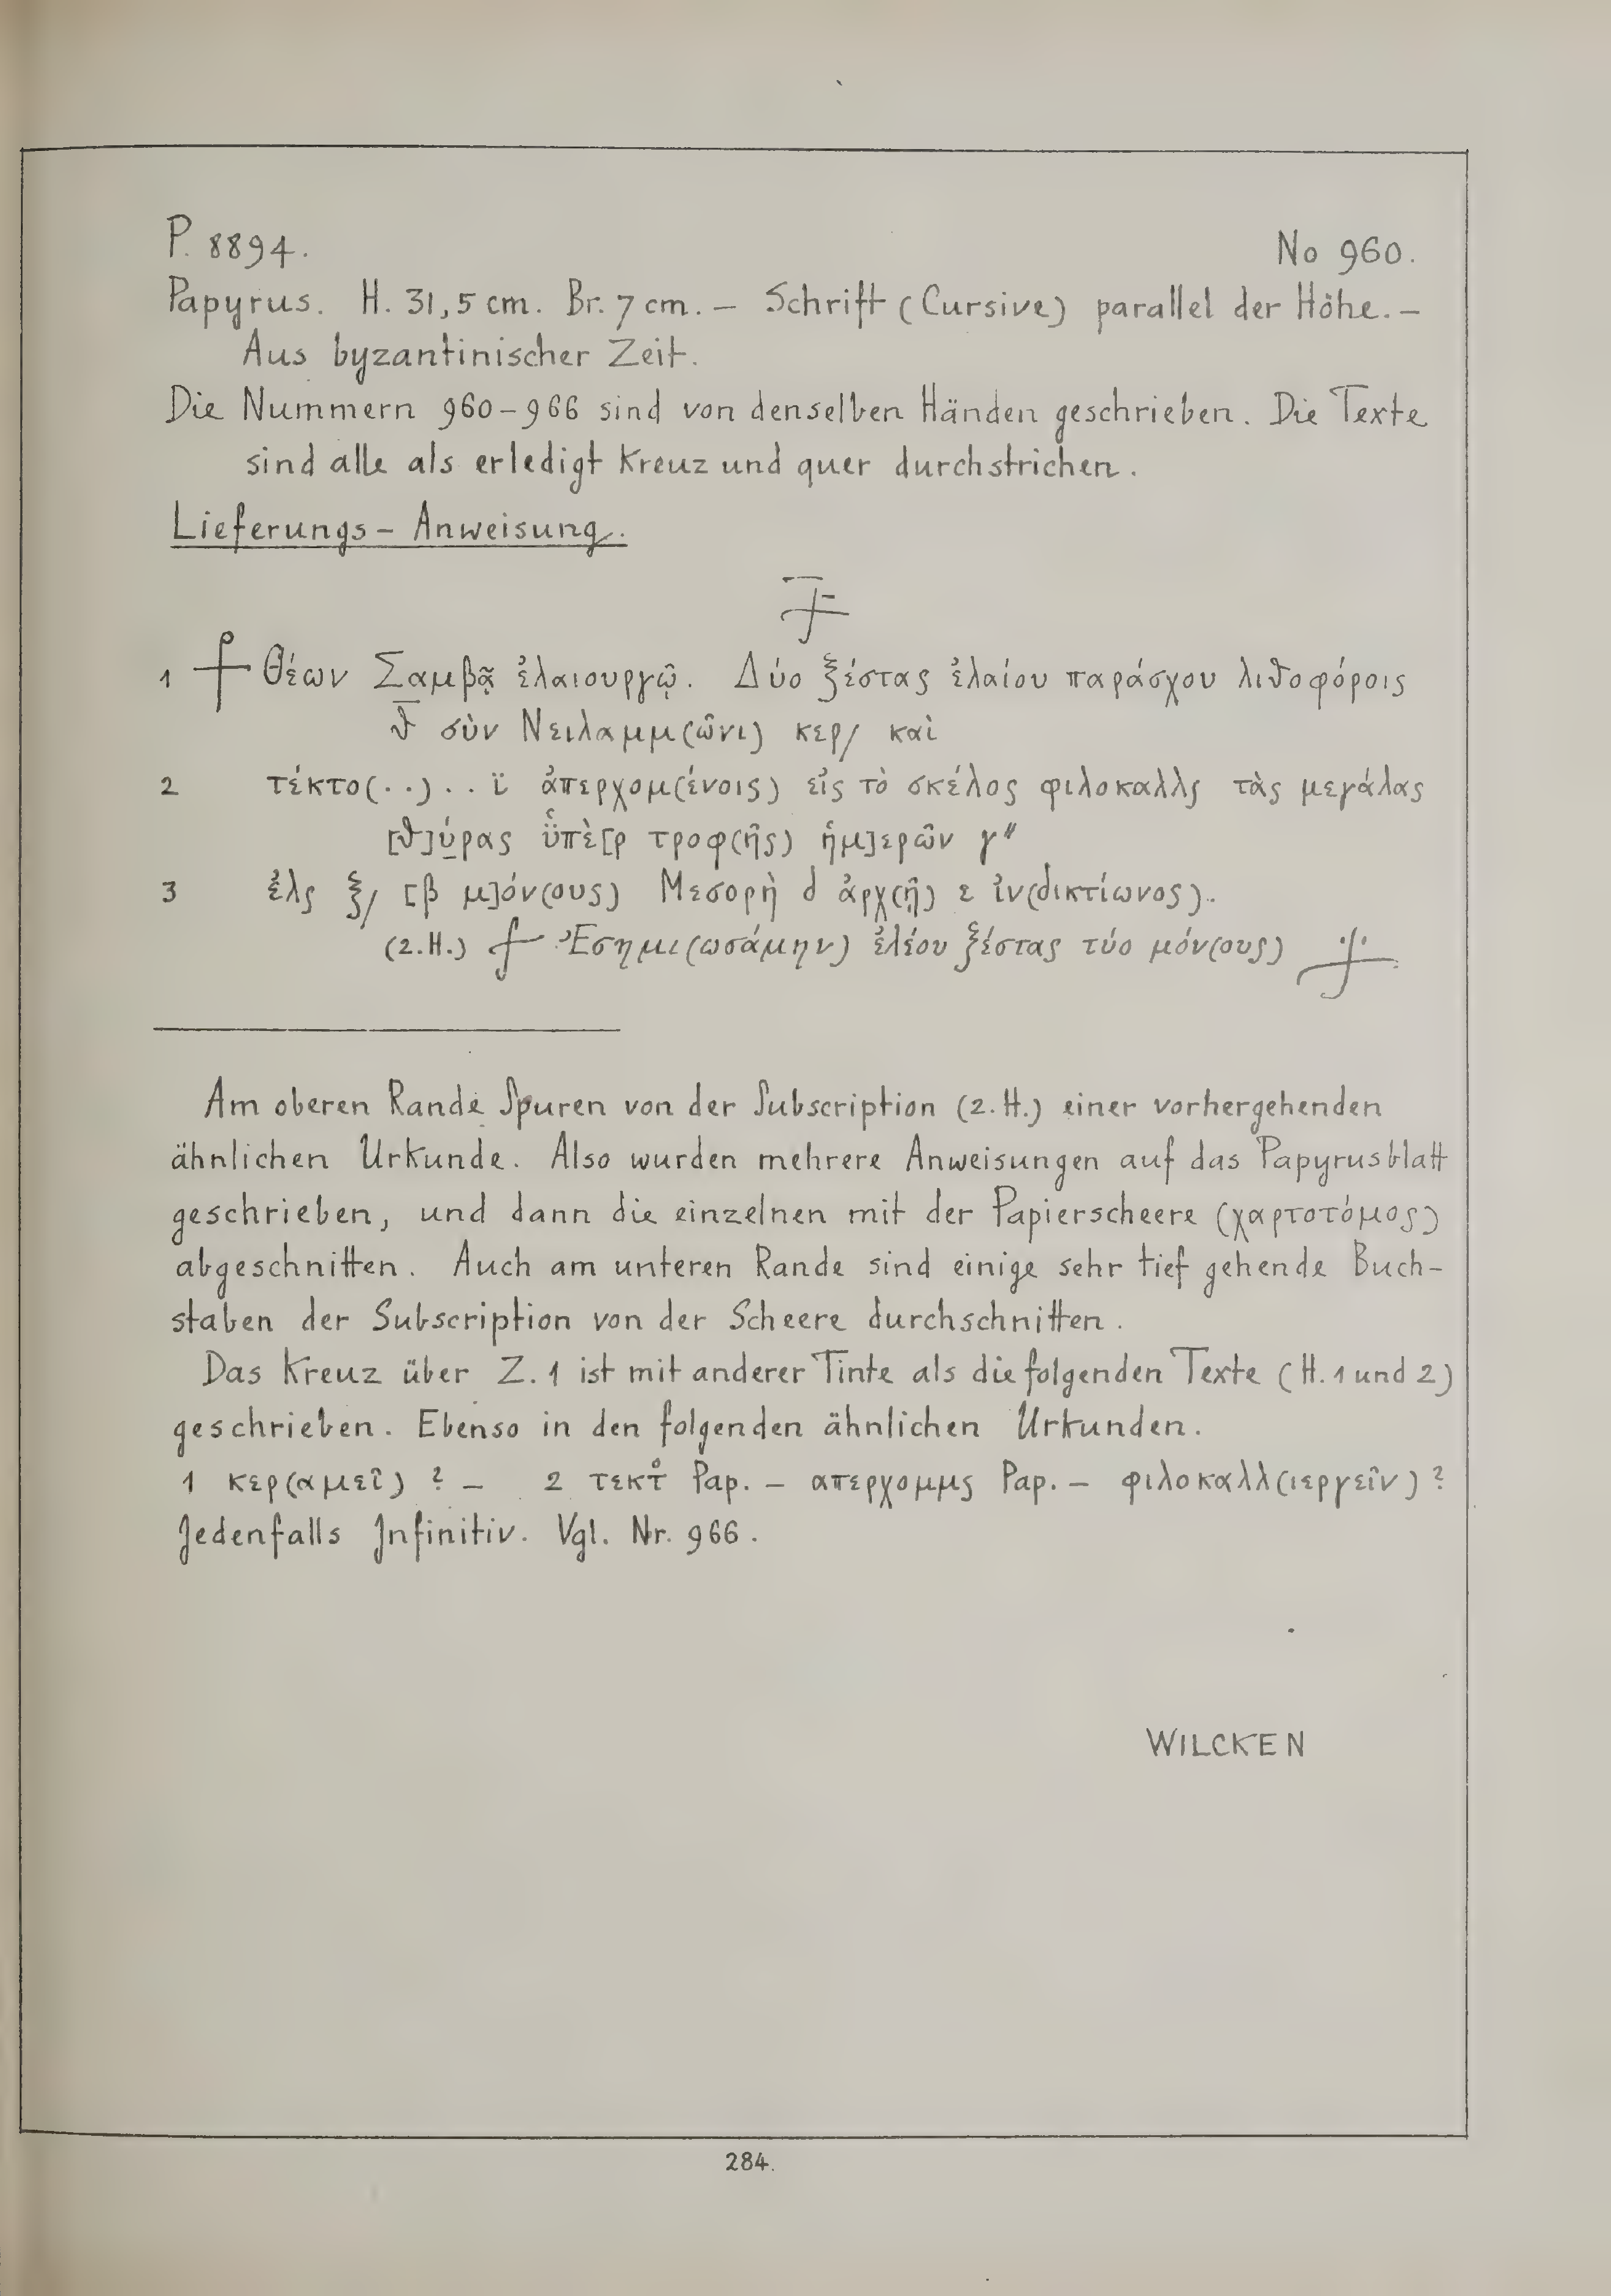 P. 8894. No 960.
Papyrus. H. 31,5 cm. Br. 7 cm. – Schrift (Cursive) parallel der Höhe. –
Aus byzantinischer Zeit.
Die Nummern 960–966 sind von denselben Händen geschrieben. Die Texte
sind alle als erledigt Kreuz und quer durchstrichen.
Lieferungs – Anweisung.
1 Θέων Σαμβᾷ ἐλαιουργῷ. Δύο ξέστας ἐλαίου παράσχου λιθοφόροις
θ̅ σὺν Νειλαμμ(ῶνι) κερ/ καὶ
2 τέκτο(..)..ϊ ἀπερχομ(ένοις) εἰς τὸ σκέλος φιλοκαλλς τὰς μεγάλας
[θ]ύ̣ρας ὑ̈πὲ[ρ τροφ(ῆς) ἡμ]ερῶν γ″
3 ἐλς ξ/ [β μ]όν(ους) Μεσορὴ d ἀρχ(ῇ) ε ἰν(δικτίωνος).
(2. H.) Ἐσημι(ωσάμην) ἐλέου ξέστας τύο μόν(ους)
Am oberen Rande Spuren von der Subscription (2. H.) einer vorhergehenden
ähnlichen Urkunde. Also wurden mehrere Anweisungen auf das Papyrusblatt
geschrieben, und dann die einzelnen mit der Papierscheere (χαρτοτόμος)
abgeschnitten. Auch am unteren Rande sind einige sehr tief gehende Buch-
staben der Subscription von der Scheere durchschnitten.
Das Kreuz über Z. 1 ist mit anderer Tinte als die folgenden Texte (H. 1 und 2)
geschrieben. Ebenso in den folgenden ähnlichen Urkunden.
1 κερ(αμεῖ) ? – 2 τεκτο Pap. – απερχομμς Pap. – φιλοκαλλ(ιεργεῖν) ?
Jedenfalls Infinitiv. Vgl. Nr. 966.
WILCKEN
284.